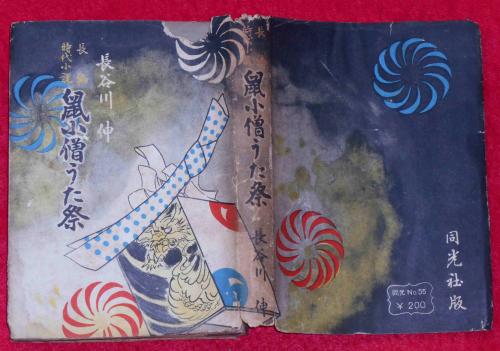 長谷川 伸
長編
時代小説
鼠小僧うた祭
長
鼠小僧うた祭
長谷川 伸
同光社版
同光 No.55
¥ 200